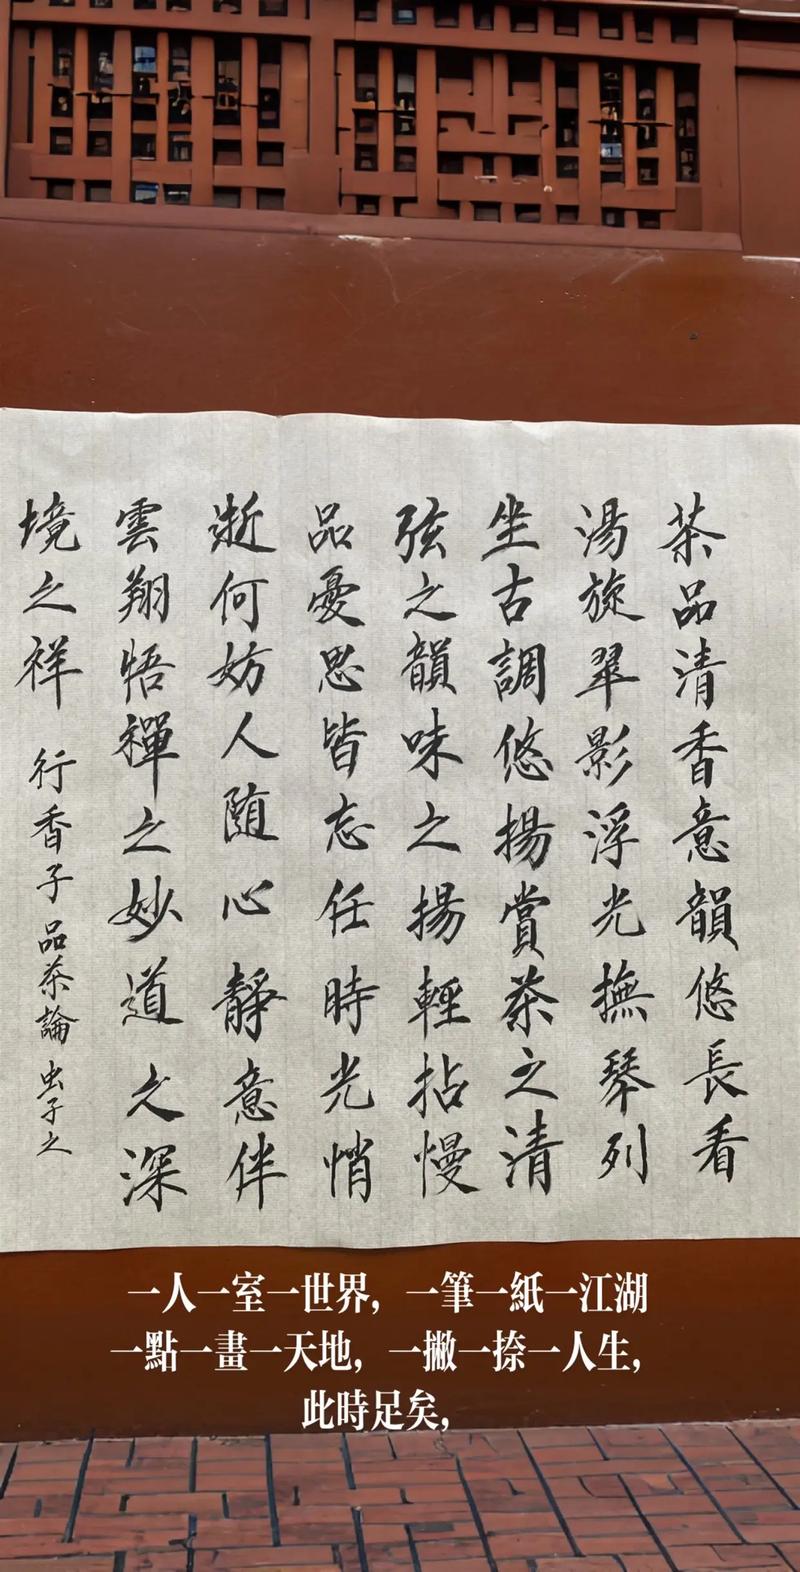 茶品清香意韻悠長看
湯旋翠影浮光撫琴列
坐古調悠揚賞茶之清
弦之韻味之揚輕拈慢
品憂思皆忘任時光悄
逝何妨人随心靜意伴
雲翔悟禪之妙道之深
境之祥
行香子品茶論 虫子之
一人一室一世界，一筆一紙一江湖
一點一畫一天地，一撇一捺一人生，
此時足矣，